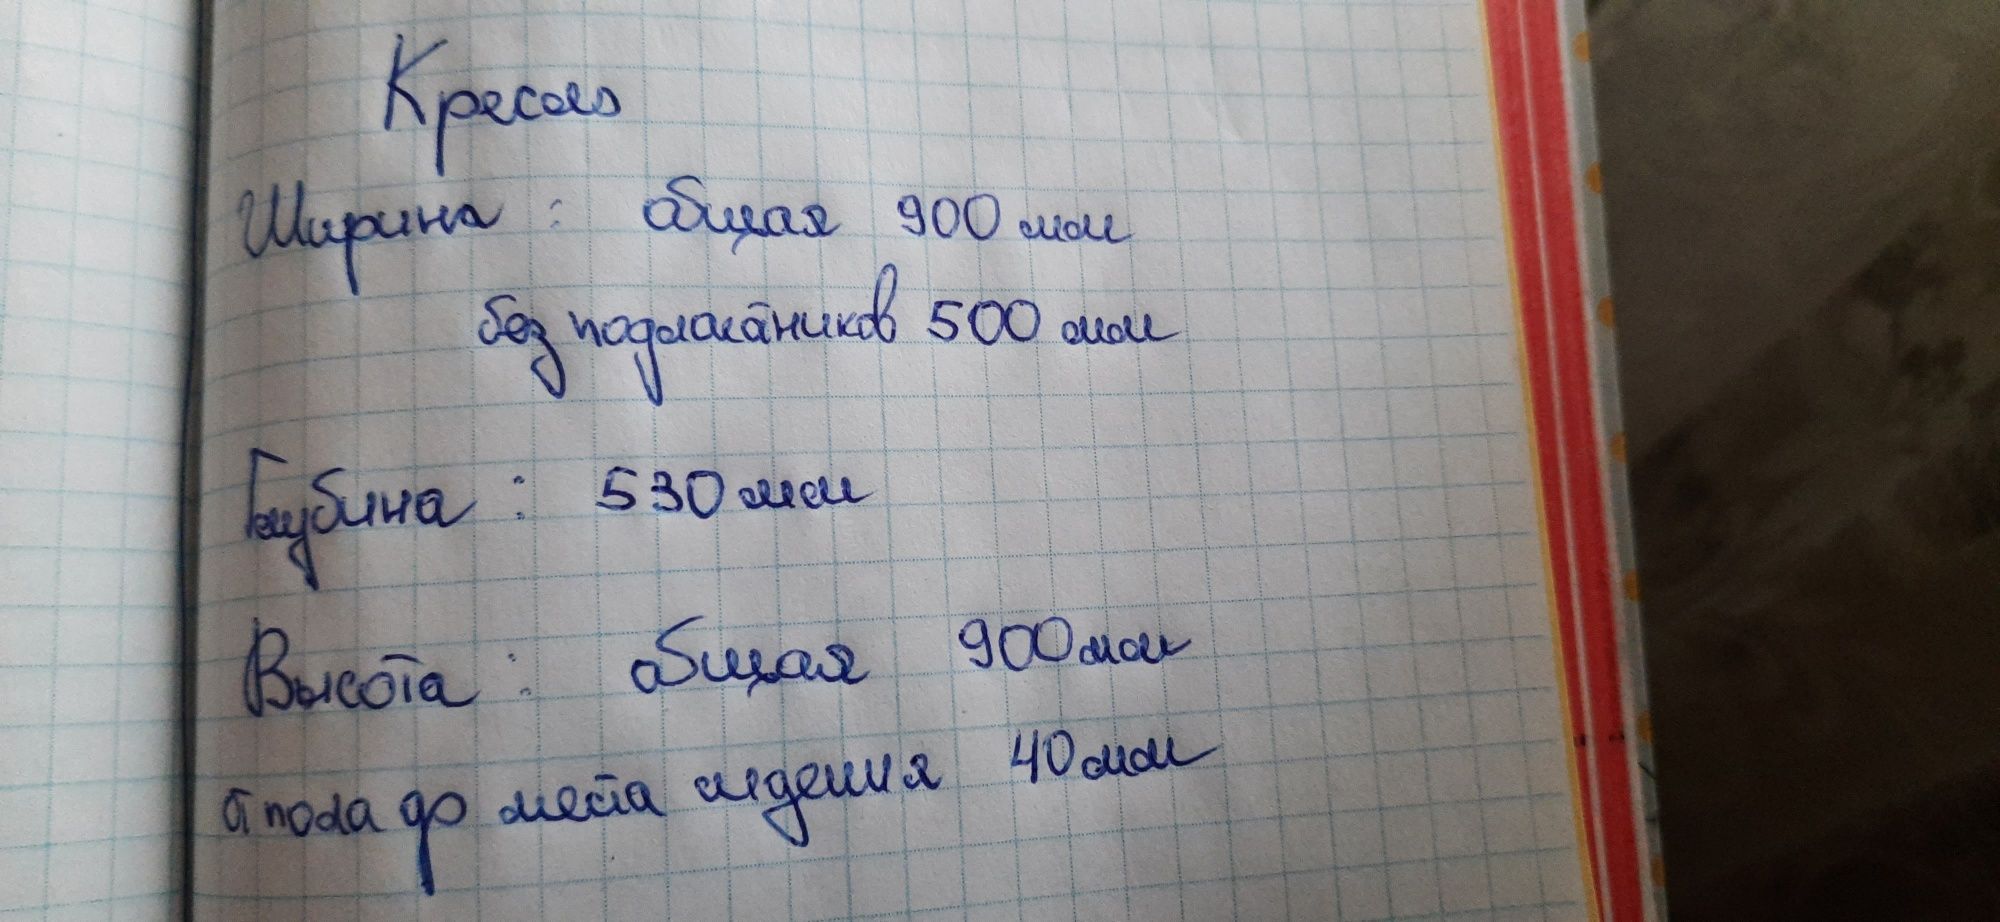 Кресло
Ширина : общая 900 мм
без подлокотников 500 мм
Глубина : 530 мм
Высота : общая 900 мм
от пола до места сидения 40 мм